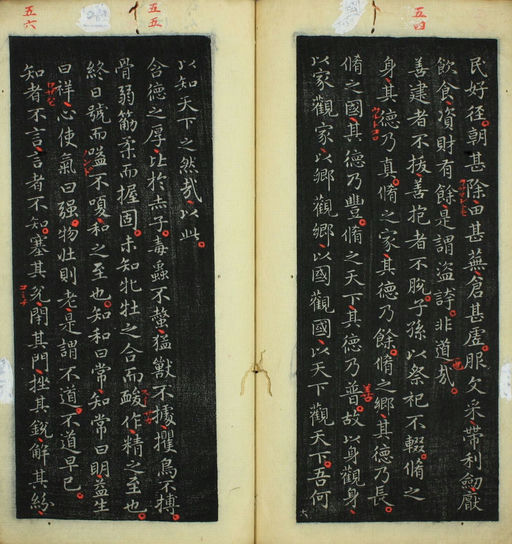 五四
民好徑朝甚除田甚蕪倉甚虛服文采帶利劒厭
飲食資財有餘是謂盜誇非道也哉
善建者不拔善抱者不脫子孫以祭祀不輟脩之
身其德乃真脩之家其德乃餘脩之鄉其德乃長
脩之國其德乃豐脩之天下其德乃普故以身觀身
善
以家觀家以鄉觀鄉以國觀國以天下觀天下吾何
五五
以知天下之然哉以此
含德之厚比於赤子毒蟲不螫猛獸不據攫鳥不搏
骨弱筋柔而握固未知牝牡之合而酸作精之至也
終日號而嗌不嗄和之至也知和曰常知常曰明益生
曰祥心使氣曰强物壯則老是謂不道不道早已
五六
知者不言言者不知塞其兌閉其門挫其銳解其紛